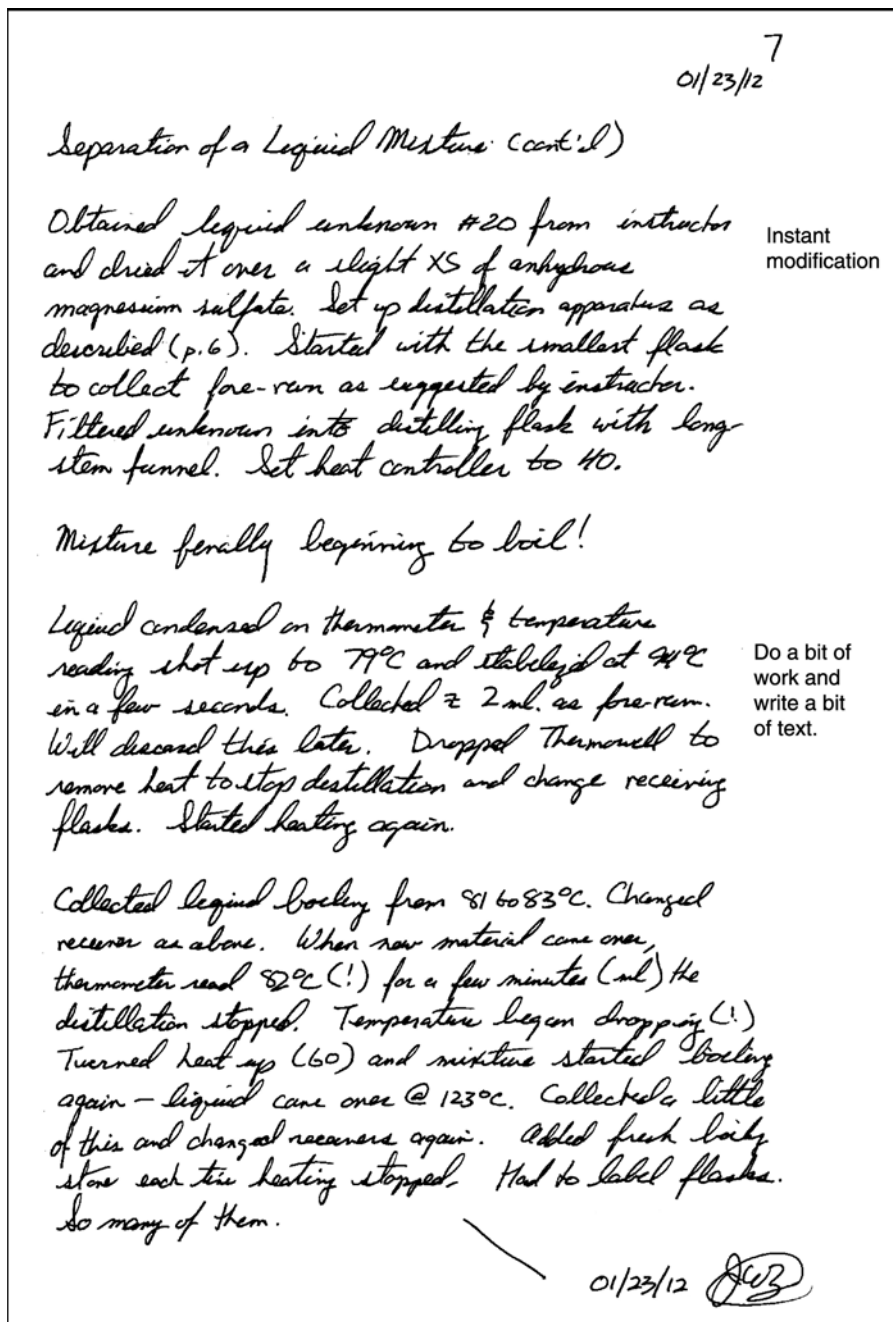 7
01/23/12
Separation of a Liquid Mixture (cont'd)
Obtained liquid unknown #20 from instructor
and dried it over a slight XS of anhydrous
magnesium sulfate. Set up distillation apparatus as
described (p.6). Started with the smallest flask
to collect fore-run as suggested by instructor.
Filtered unknown into distilling flask with long-
stem funnel. Set heat controller to 40.
Instant
modification
Mixture finally beginning to boil!
Liquid condensed on thermometer & temperature
reading shot up to 79°C and stabilized at 94°C
in a few seconds. Collected 2 ml. as fore-run.
Will discard this later. Dropped Thermowell to
remove heat to stop distillation and change receiving
flasks. Started heating again.
Do a bit of
work and
write a bit
of text.
Collected liquid boiling from 81 to 83°C. Changed
receiver as above. When new material came over,
thermometer read 82°C (!) for a few minutes (ml) the
distillation stopped. Temperature began dropping (!)
Turned heat up (60) and mixture started boiling
again – liquid came over @ 123°C. Collected a little
of this and changed receivers again. Added fresh boiling
stone each time heating stopped. Had to label flasks.
So many of them.
01/23/12 JWZ